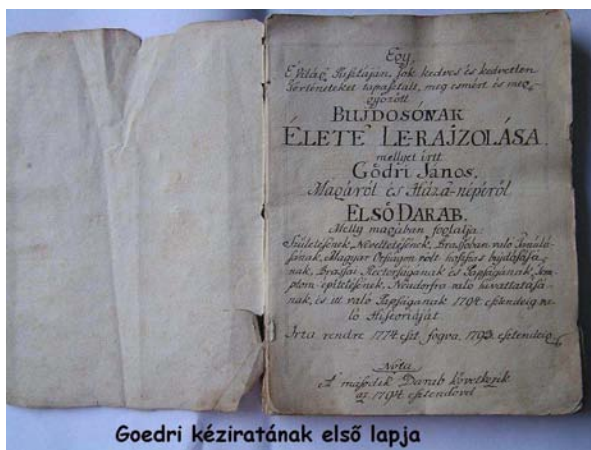 Egy,
E' Világ Pusztáján, sok kedves és kedvetlen
történeteket tapasztalt, meg esmért és meg-
győzött
BUJDOSÓNAK
ÉLETE LE-RAJZOLÁSA.
mellyet írtt
Gődri János.
Magáról és Háza-népéről
ELSŐ DARAB.
Melly magában foglalja
Születésének, Neveltetésének, Brassoban való Tanúlá-
sának, Magyar Országon vólt hosszas bujdosásá-
nak, Brassai Rectorságának és Papságának, Tem-
plom építetésének, Neüdorfra való hivattatásá-
nak, és itt való Papságának 1794. esztendeig va-
ló Historiáját
Irta rendre 1774. eszt. fogva, 1793. esztendeig
Nóta
A' második Darab következik
az 1794. esztendővel
Goedri kéziratának első lapja